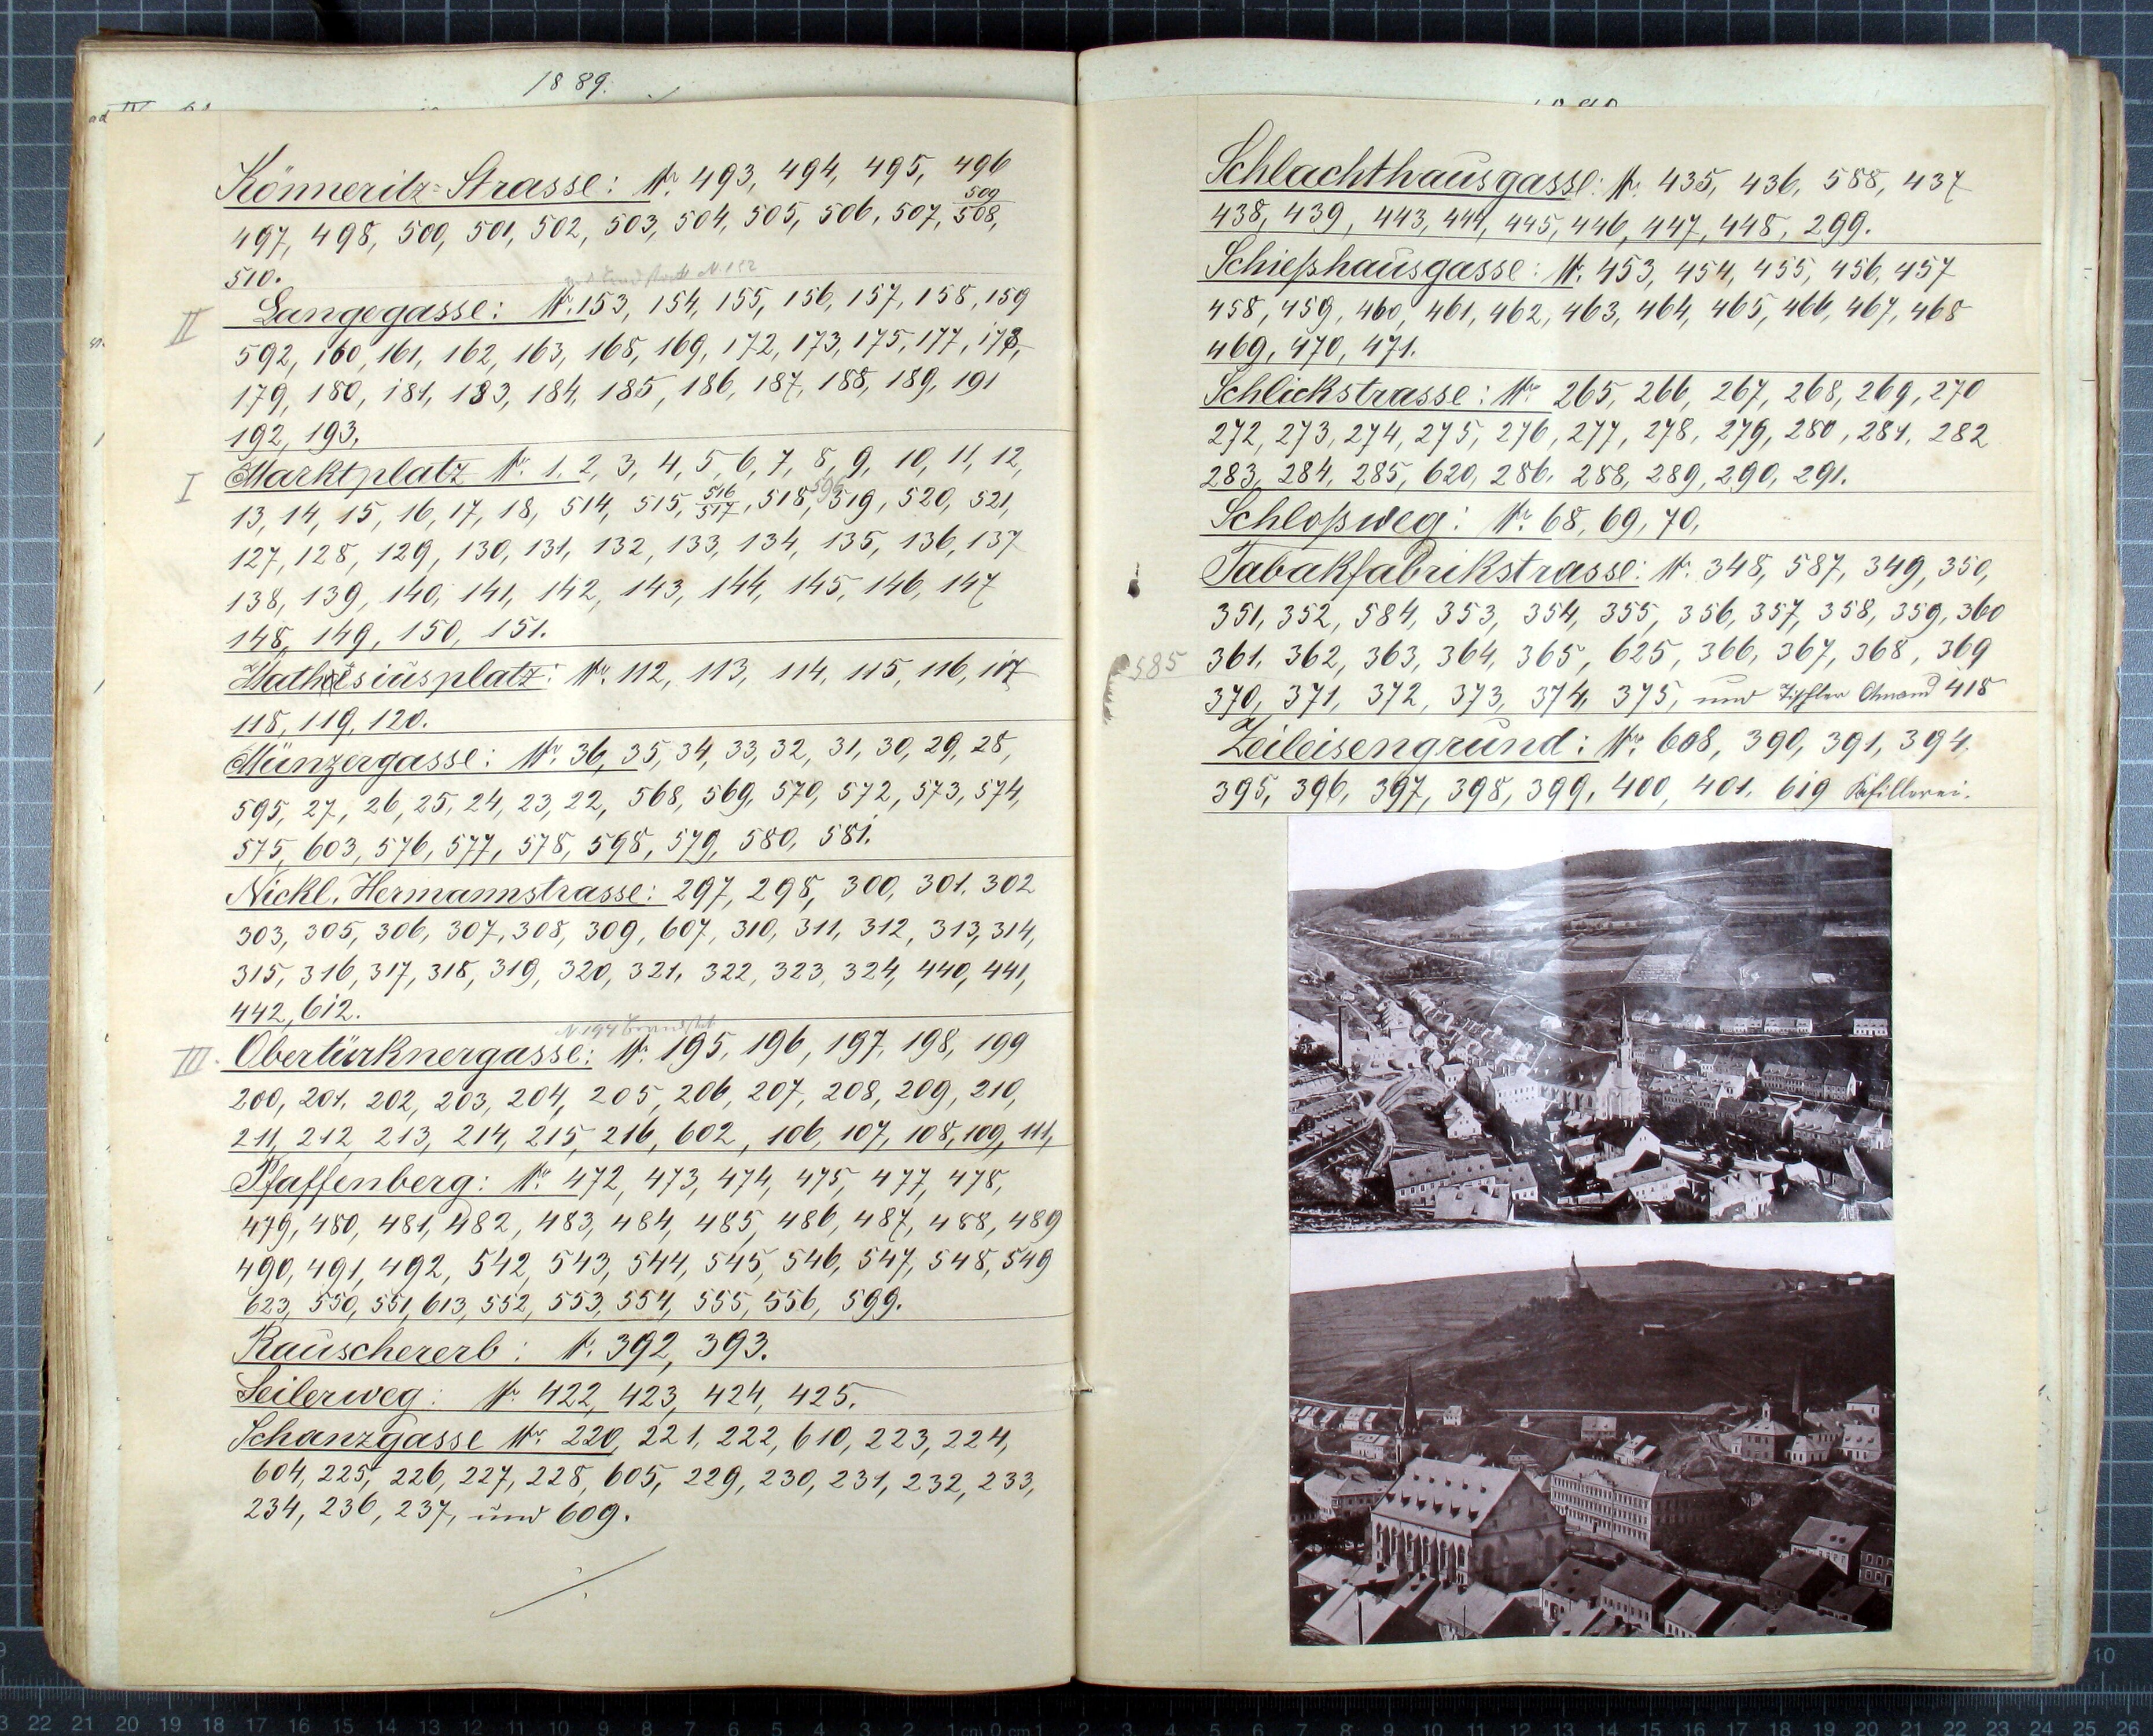 1889.
Könneritz-Strasse: Nr. 493, 494, 495, 496
497, 498, 500, 501, 502, 503, 504, 505, 506, 507, 509/508,
510.
N. 152
II Langegasse: Nr. 153, 154, 155, 156, 157, 158, 159
592, 160, 161, 162, 163, 168, 169, 172, 173, 175, 177, 178,
179, 180, 181, 183, 184, 185, 186, 187, 188, 189, 191
192, 193,
I Marktplatz Nr. 1, 2, 3, 4, 5, 6, 7, 8, 9, 10, 11, 12,
13, 14, 15, 16, 17, 18, 514, 515, 516/517, 518, 596 519, 520, 521,
127, 128, 129, 130, 131, 132, 133, 134, 135, 136, 137
138, 139, 140, 141, 142, 143, 144, 145, 146, 147
148, 149, 150, 151.
Mathesiusplatz: Nr. 112, 113, 114, 115, 116, 117
118, 119, 120.
Münzergasse: Nr. 36, 35, 34, 33, 32, 31, 30, 29, 28,
595, 27, 26, 25, 24, 23, 22, 568, 569, 570, 572, 573, 574,
575, 603, 576, 577, 578, 598, 579, 580, 581.
Nickl. Hermannstrasse: 297, 298, 300, 301, 302
303, 305, 306, 307, 308, 309, 607, 310, 311, 312, 313, 314,
315, 316, 317, 318, 319, 320, 321, 322, 323, 324, 440, 441,
442, 612.
N. 194
III. Obertürknergasse: Nr. 195, 196, 197, 198, 199
200, 201, 202, 203, 204, 205, 206, 207, 208, 209, 210,
211, 212, 213, 214, 215, 216, 602, 106, 107, 108, 109, 111,
Pfaffenberg: Nr. 472, 473, 474, 475, 477, 478,
479, 480, 481, 482, 483, 484, 485, 486, 487, 488, 489
490, 491, 492, 542, 543, 544, 545, 546, 547, 548, 549
623, 550, 551, 613, 552, 553, 554, 555, 556, 599.
Rauschererb: Nr. 392, 393.
Seilerweg: Nr. 422, 423, 424, 425.
Schanzgasse Nr. 220, 221, 222, 610, 223, 224,
604, 225, 226, 227, 228, 605, 229, 230, 231, 232, 233,
234, 236, 237, und 609.
Schlachthausgasse: Nr. 435, 436, 588, 437
438, 439, 443, 444, 445, 446, 447, 448, 299.
Schießhausgasse: Nr. 453, 454, 455, 456, 457
458, 459, 460, 461, 462, 463, 464, 465, 466, 467, 468
469, 470, 471.
Schlickstrasse: Nr. 265, 266, 267, 268, 269, 270
272, 273, 274, 275, 276, 277, 278, 279, 280, 281, 282
283, 284, 285, 620, 286, 288, 289, 290, 291.
Schloßweg: Nr. 68, 69, 70,
Tabakfabrikstrasse: Nr. 348, 587, 349, 350,
351, 352, 584, 353, 354, 355, 356, 357, 358, 359, 360
585 361, 362, 363, 364, 365, 625, 366, 367, 368, 369
370, 371, 372, 373, 374, 375, und Tischler 418
Zeileisengrund: Nr. 608, 390, 391, 394,
395, 396, 397, 398, 399, 400, 401, 619